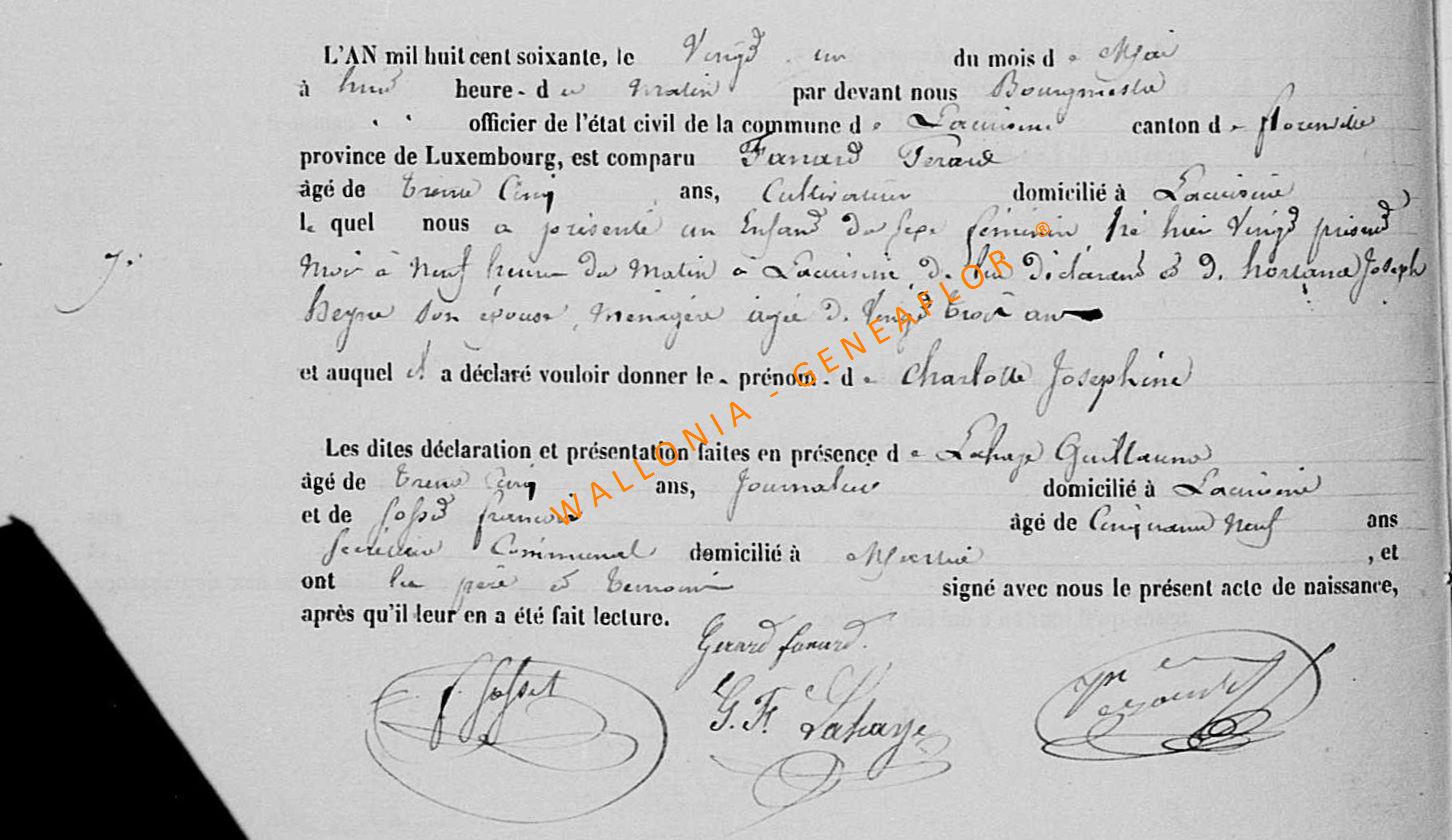 L'AN mil huit cent soixante, le Vingt un du mois de Mai
à huit heure- du matin par devant nous Bourgmestre
officier de l'état civil de la commune de Lacuisine canton de Florenville
province de Luxembourg, est comparu Fanard Gerard
âgé de trente Cinq ans, Cultivateur domicilié à Lacuisine
le quel nous a présenté un Enfant du sexe féminin, né hier Vingt présent
7.
Mois à Neuf heures du Matin à Lacuisine de lui déclarant et d. hortance Joseph
son épouse, Ménagère agée d. Vingt trois ans
et auquel il a déclaré vouloir donner le- prénom- de Charlotte Josephine
Les dites déclaration et présentation faites en présence de Lahaye Guillaume
âgé de trente Cinq ans, Journalier domicilié à Lacuisine
et de Josset francois âgé de Cinquante Neuf ans
Secrétaire Communal domicilié à , et
ont les père et temoins signé avec nous le présent acte de naissance,
après qu'il leur en a été fait lecture.
Gerard fanard.
f. Josset G. F. Lahaye
WALLONIA - GENEAFLOR ®